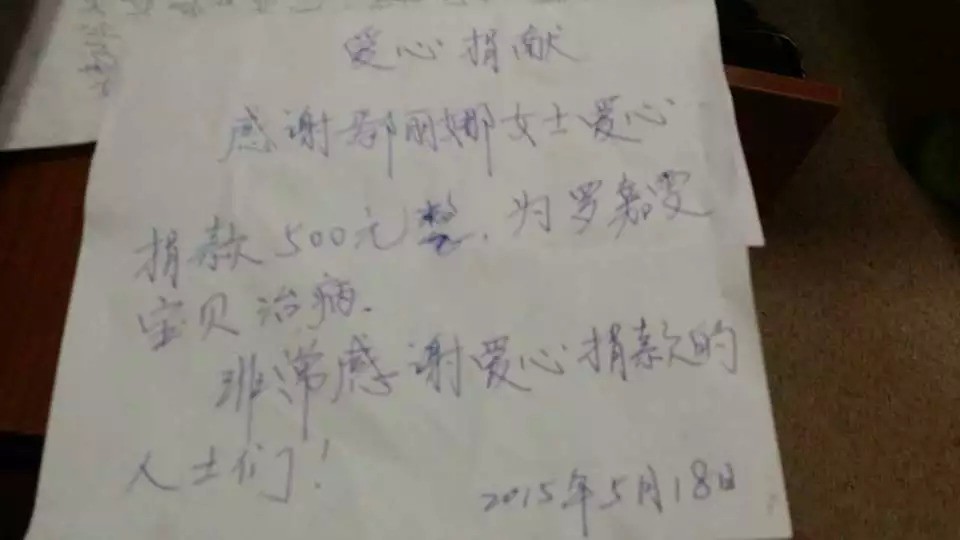 爱心捐献
感谢郡丽娜女士爱心
捐款500元整.为罗嘉雯
宝贝治病.
非常感谢爱心捐款的
人士们!
2015年5月18日